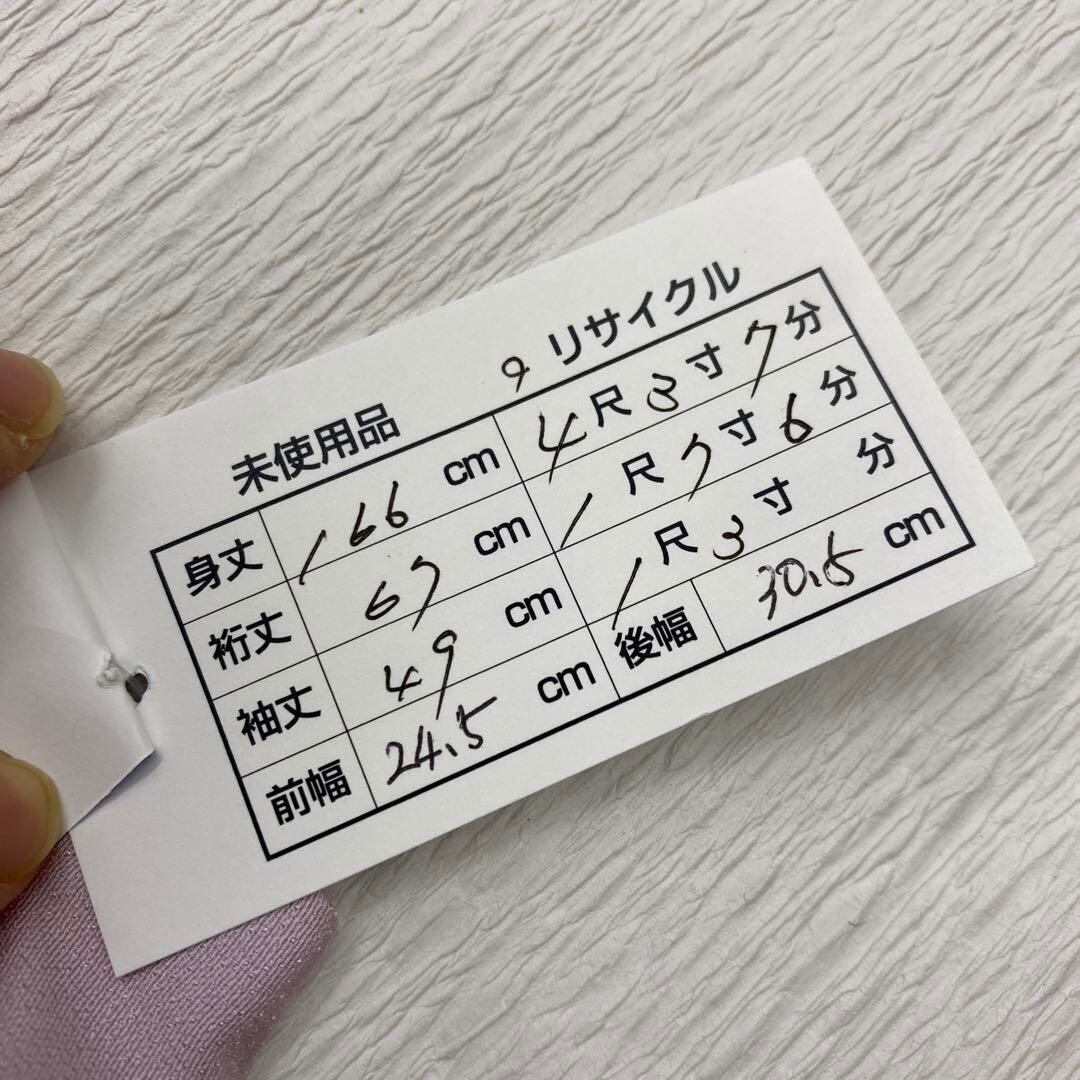 未使用品 9 リサイクル
身丈 166 cm 4尺3寸7分
裄丈 67 cm 1尺7寸6分
袖丈 49 cm 1尺3寸 分
前幅 24.5 cm 後幅 30.5 cm